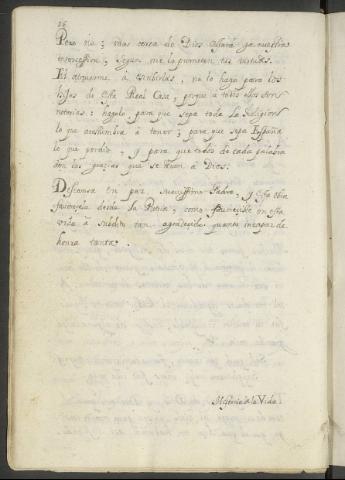 26
Pero no; mas cerca de Dios estará ya nuestra
intercession, segun me lo prometen tus virtudes.
El atreverme á escribirlas, no lo hago para los
hijos de esta Real Casa, porque á todos ellos son
notorias: hagolo para que sepa toda la Religion
lo que a tener; para que sepa España
lo que perdio, y para que todos de cada palabra
den las gracias que se deven á Dios.
Descansa en paz, Padre, y esta obra
favorezela desde la Patria, como favoreciste en esta
vida á subdito tan agradecido, quanto incapaz de
honra tanta.
de la Vida